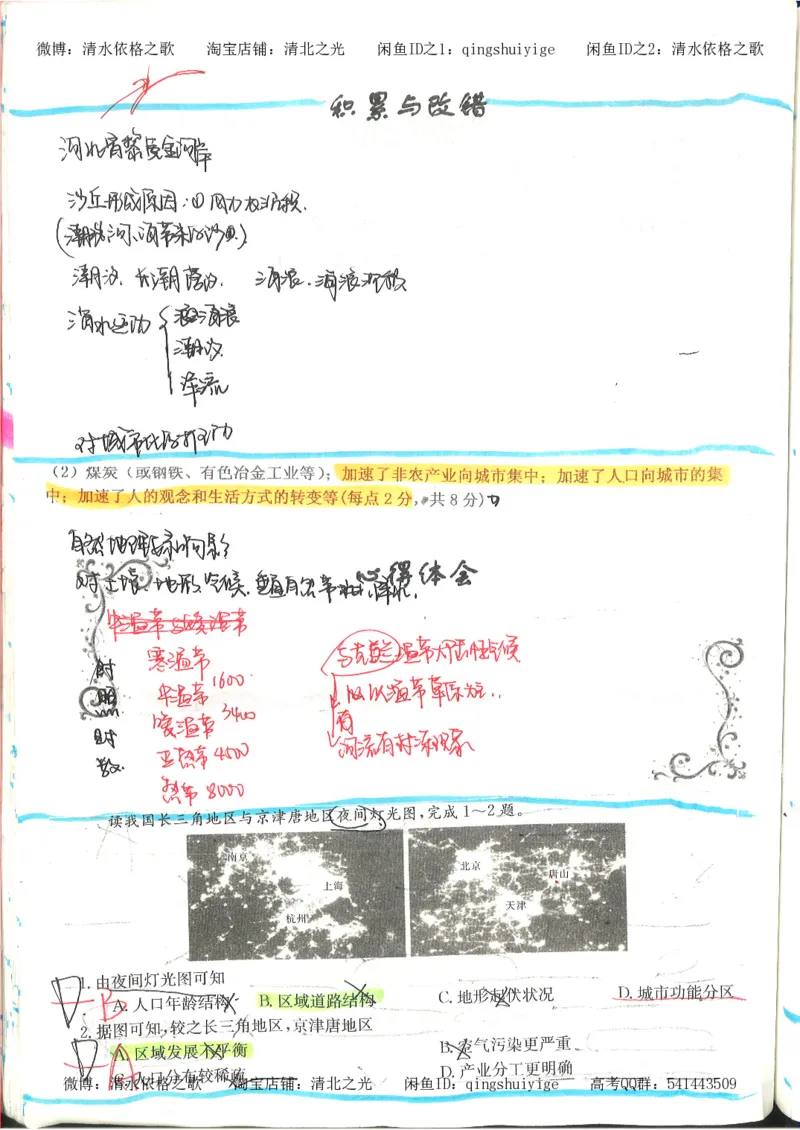 微博：清水依格之歌 淘宝店铺：清北之光 闲鱼ID之1：qingshuiyige 闲鱼ID之2：清水依格之歌
积累与改错
河北省黎昌黄金海岸
沙丘形成原因：①风力沉积.
潮汐. 海浪. 海浪沉积
海水运动
海浪
潮汐
洋流
(2) 煤炭（或钢铁、有色冶金工业等）；加速了非农产业向城市集中；加速了人口向城市的集
中；加速了人的观念和生活方式的转变等(每点2分,共8分)
自然地理要素
对土壤、地形、气候、
心得体会
时
数
寒温带
中温带 1600
暖温带 3400
亚热带 4500
热带 8000
乌克兰温带大陆性气候
以温带草原为主
有
河流有封冻现象
读我国长三角地区与京津唐地区夜间灯光图，完成1～2题。
南京
上海
杭州
北京
唐山
天津
1.由夜间灯光图可知
B
A.人口年龄结构 B.区域道路结构 C.地形起伏状况 D.城市功能分区
2.据图可知，较之长三角地区，京津唐地区
A
A.区域发展不平衡 B.空气污染更严重
C.人口分布较稀疏 D.产业分工更明确
微博：清水依格之歌 淘宝店铺：清北之光 闲鱼ID：qingshuiyige 高考QQ群：541443509